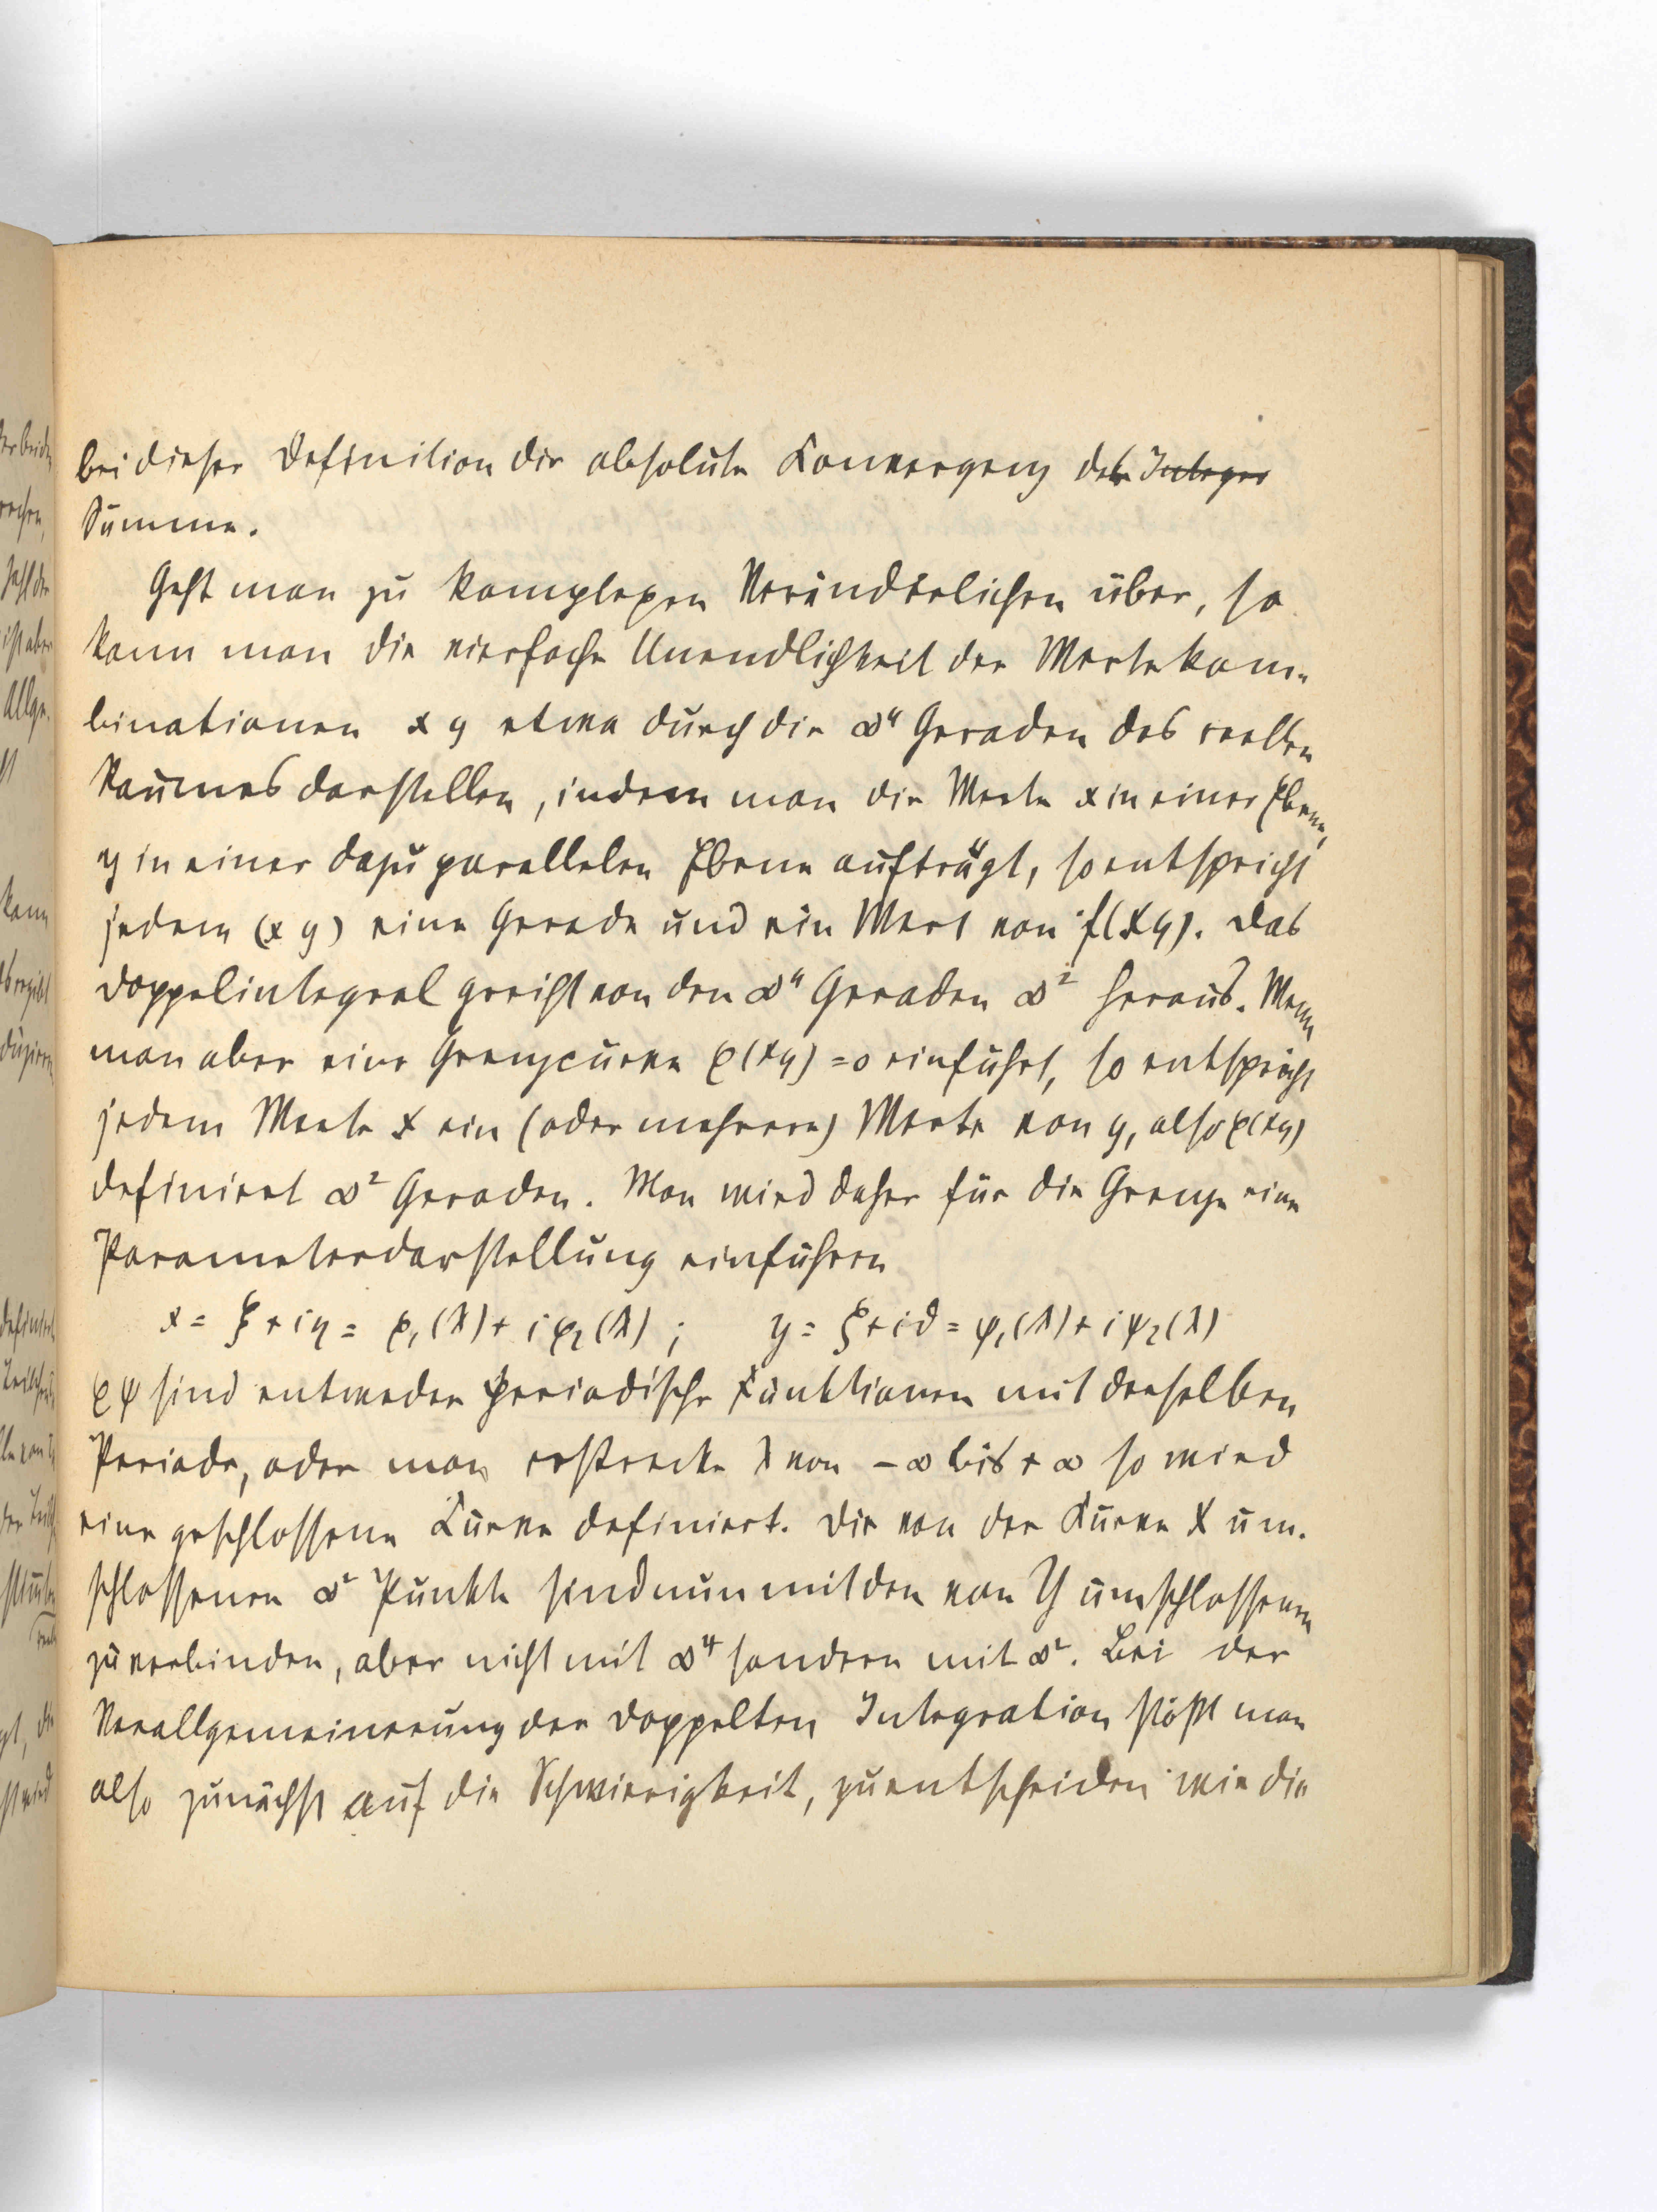 bei dieser Definition die absolute Konvergenz der Integra
Summe.
Geht man zu komplexen Veränderlichen über, so
kann man die vierfache Unendlichkeit der Wertekom-
binationen x y etwa durch die ∞⁴ Geraden des reellen
Raumes darstellen, indem man die Werte x in einer Ebene,
y in einer dazu parallelen Ebene aufträgt, so entspricht
jedem (x y) eine Gerade und ein Wert von f(xy). Das
Doppelintegral greift von den ∞⁴ Geraden ∞² heraus. Wenn
man aber eine Grenzcurve φ(xy) = 0 einführt, so entspricht
jedem Werte x ein (oder mehrere) Werte von y, also φ(xy)
definiert ∞² Geraden. Man wird daher für die Grenze eine
Parameterdarstellung einführen
x = ξ + iη = φ₁(λ) + iφ₂(λ) ; y = ζ + iϑ = ψ₁(λ) + iψ₂(λ)
φψ sind entweder periodische Funktionen mit derselben
Periode, oder man erstrecke λ von -∞ bis +∞ so wird
eine geschlossene Kurve definiert. Die von der Kurve X um-
schlossenen ∞² Punkte sind nun mit den von Y umschlossenen
zu verbinden, aber nicht mit ∞⁴ sondern mit ∞². Bei der
Verallgemeinerung der doppelten Integration stößt man
also zunächst auf die Schwierigkeit, zu entscheiden wie die